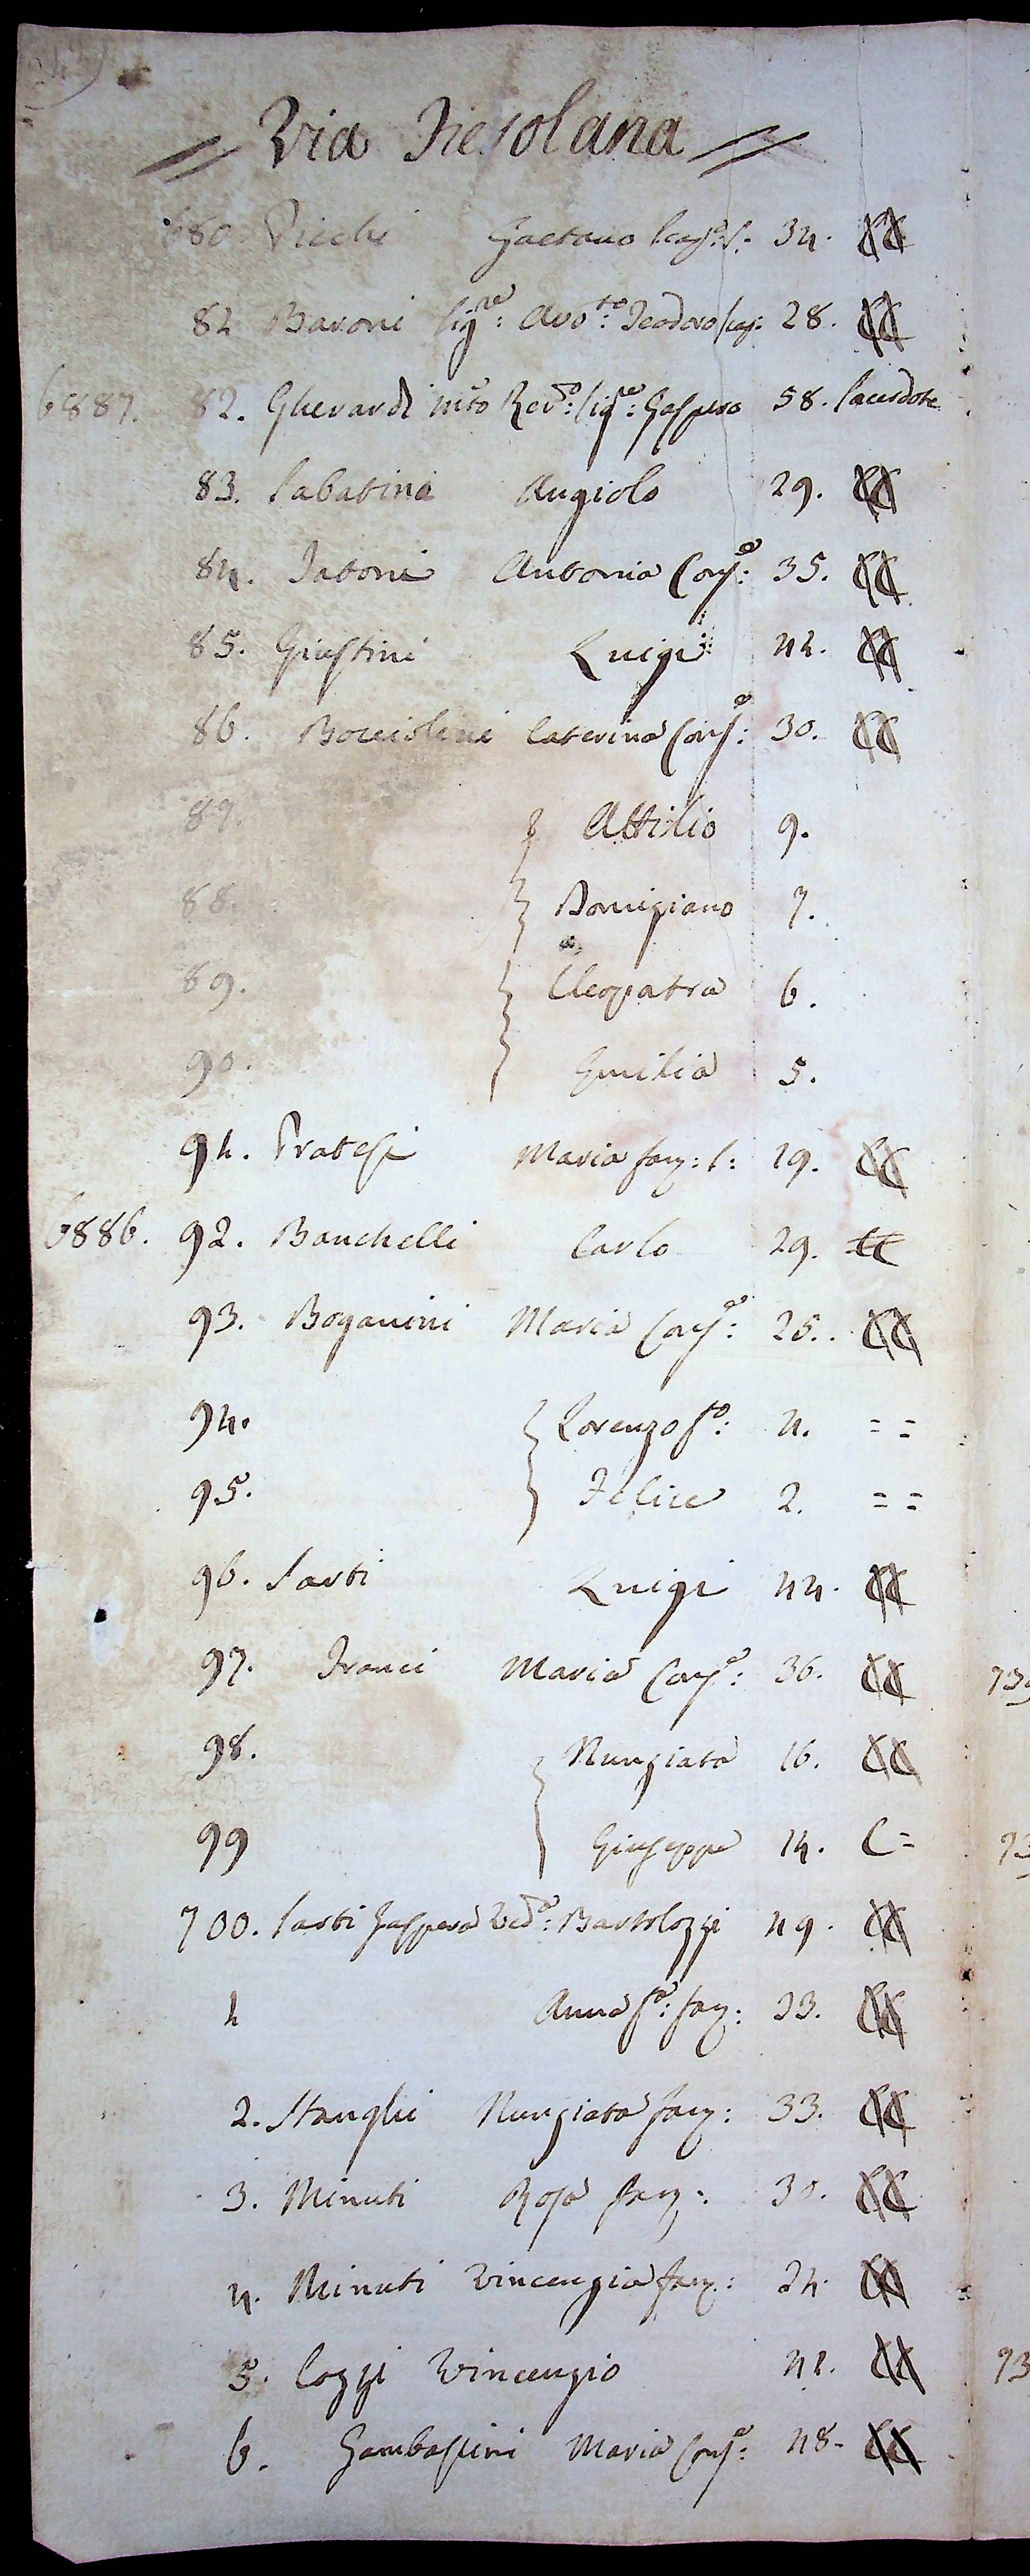 = Via Fiesolana =
680. Picchi Gaetano Scap:o S. 34.
81. Baroni Sig:re Avv:to Teodoro Scap: 28.
6887. 82. Gherardi Rev:do Sig:re Gaspero 58. Sacerdote
83. Sabatini Angiolo 29.
84. Tatoni Antonia Conj:e 35.
85. Giustini Luigi 41.
86. Bocciolini Caterina Conj:e 30.
87. Attilio 9.
88. Domigiano 7.
89. Cleopatra 6.
90. Emilia 5.
91. Pratesi Maria fanz: S: 19.
6886. 92. Banchelli Carlo 29. CC
93. Boganini Maria Conj:e 25.
94. Lorenzo f:o 4. = =
95. Felice 2. = =
96. Sarti Luigi 44.
97. Franci Maria Conj:e 36.
98. Nunziata 16.
99 Giuseppe 14. C =
700. Sarti Gaspera Ved:a Bartolozzi 49.
1 Anna f:a fanz: 23.
2. Stanghi Nunziata fanz: 33.
3. Minuti Rosa fanz: 30.
4. Minuti Vincenzia fanz: 21.
5. Cozzi Vincenzio 41.
6. Gambassini Maria Conj:e 48.